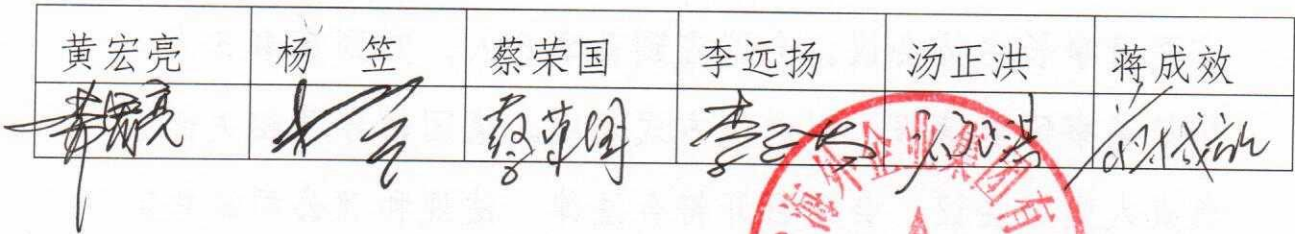 黄宏亮 杨 笠 蔡荣国 李远扬 汤正洪 蒋成效
黄宏亮 杨笠 蔡荣国 李远扬 汤正洪 蒋成效
海外企业集团有